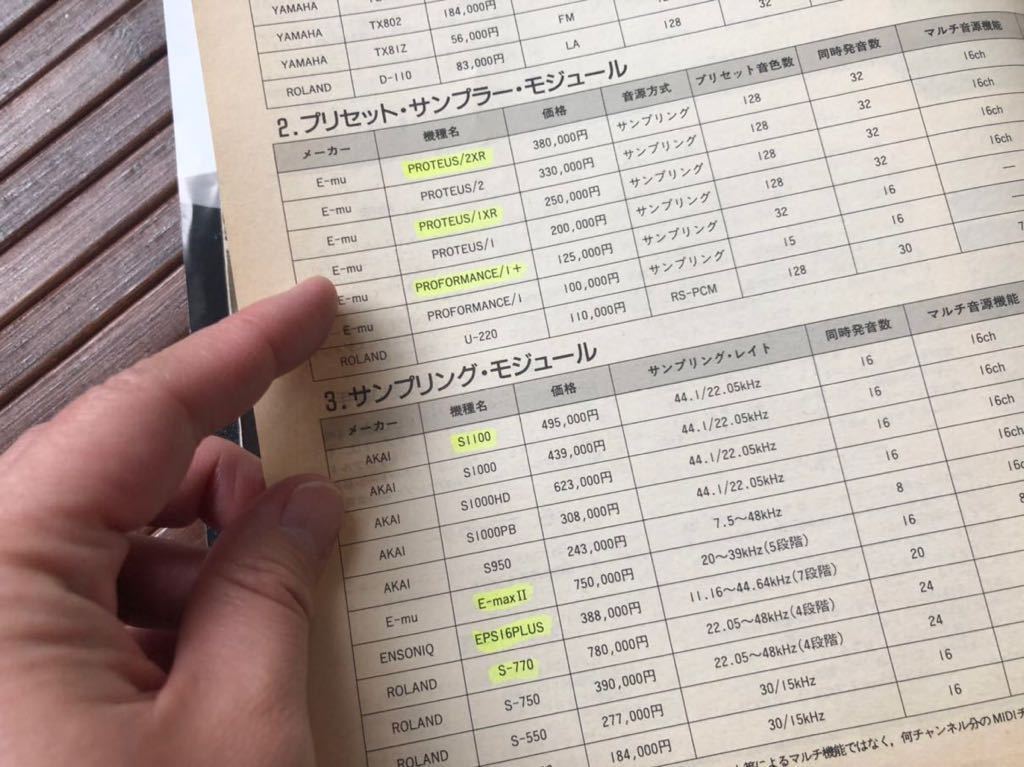 YAMAHA
YAMAHA TX802 184,000円
YAMAHA TX81Z 56,000円 FM
ROLAND D-110 83,000円 LA 128 32
2.プリセット・サンプラー・モジュール
メーカー 機種名 価格 音源方式 プリセット音色数 同時発音数 マルチ音源機能
E-mu PROTEUS/2XR 380,000円 サンプリング 128 32 16ch
E-mu PROTEUS/2 330,000円 サンプリング 128 32 16ch
E-mu PROTEUS/1XR 250,000円 サンプリング 128 32 16ch
E-mu PROTEUS/1 200,000円 サンプリング 128 32 16ch
E-mu PROFORMANCE/1+ 125,000円 サンプリング 32 16 —
E-mu PROFORMANCE/1 100,000円 サンプリング 15 16 —
ROLAND U-220 110,000円 RS-PCM 128 30
3.サンプリング・モジュール
メーカー 機種名 価格 サンプリング・レイト 同時発音数 マルチ音源機能
AKAI S1100 495,000円 44.1/22.05kHz 16 16ch
AKAI S1000 439,000円 44.1/22.05kHz 16 16ch
AKAI S1000HD 623,000円 44.1/22.05kHz 16 16ch
AKAI S1000PB 308,000円 44.1/22.05kHz 16 16ch
AKAI S950 243,000円 7.5〜48kHz 8
E-mu E-maxⅡ 750,000円 20〜39kHz(5段階) 16
ENSONIQ EPS16PLUS 388,000円 11.16〜44.64kHz(7段階) 20
ROLAND S-770 780,000円 22.05〜48kHz(4段階) 24
ROLAND S-750 390,000円 22.05〜48kHz(4段階) 24
ROLAND S-550 277,000円 30/15kHz 16
184,000円 30/15kHz 16
によるマルチ機能ではなく，何チャンネル分のMIDI